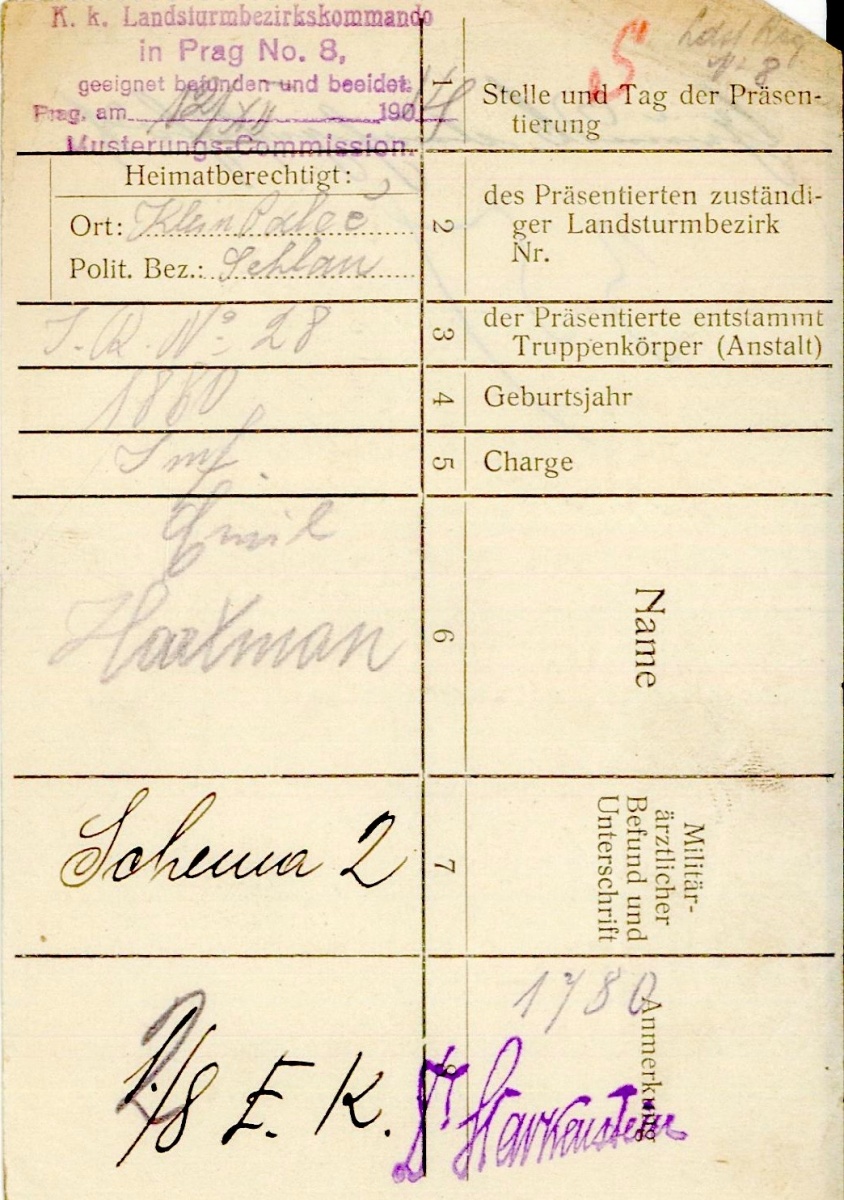 K. k. Landsturmbezirkskommando
in Prag No. 8,
geeignet befunden und beeidet.
Prag, am 12/XII 1914
Musterungs-Commission.
S
N° 8
1
Stelle und Tag der Präsen-
tierung
Heimatberechtigt:
Ort: Klein Paleč
Polit. Bez.: Schlan
2
des Präsentierten zuständi-
ger Landsturmbezirk
Nr.
J. R. N° 28
3
der Präsentierte entstammt
Truppenkörper (Anstalt)
4
Geburtsjahr
Inf.
5
Charge
Emil
Hartman
6
Name
Schema 2
7
Militär-
ärztlicher
Befund und
Unterschrift
1780
Anmerkung
2
1./8 E. K.
8
Dr